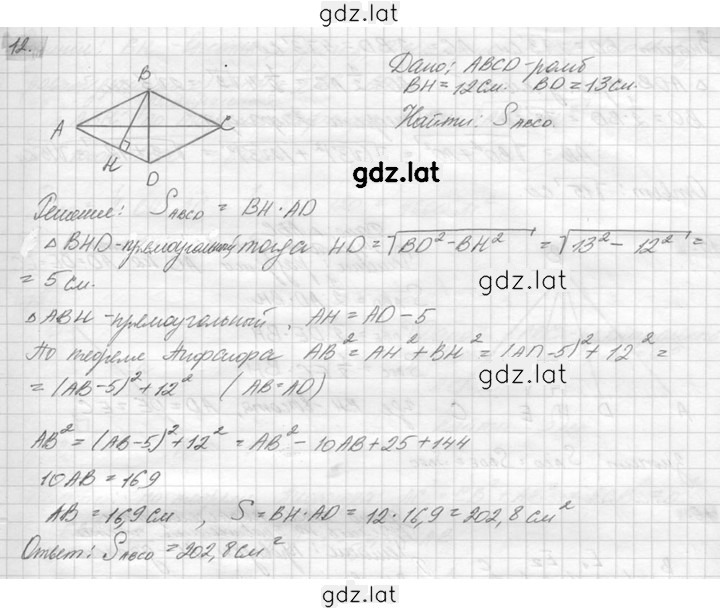 gdz.lat
12.
Дано: ABCD-ромб
BH=12см. BD=13см.
Найти: S ABCD.
B
A
C
H
D
gdz.lat
Решение: S ABCD = BH·AD
△BHD-прямоугольный, тогда HD=√BD²-BH² = √13²-12² =
= 5см.
gdz.lat
△ABH-прямоугольный, AH=AD-5
По теореме Пифагора AB²=AH²+BH²=(AD-5)²+12²=
=(AB-5)²+12² (AB=AD)
gdz.lat
AB²=(AB-5)²+12²=AB²-10AB+25+144
10AB=169
AB=16,9см, S=BH·AD=12·16,9=202,8см²
Ответ: S ABCD=202,8см²
gdz.lat